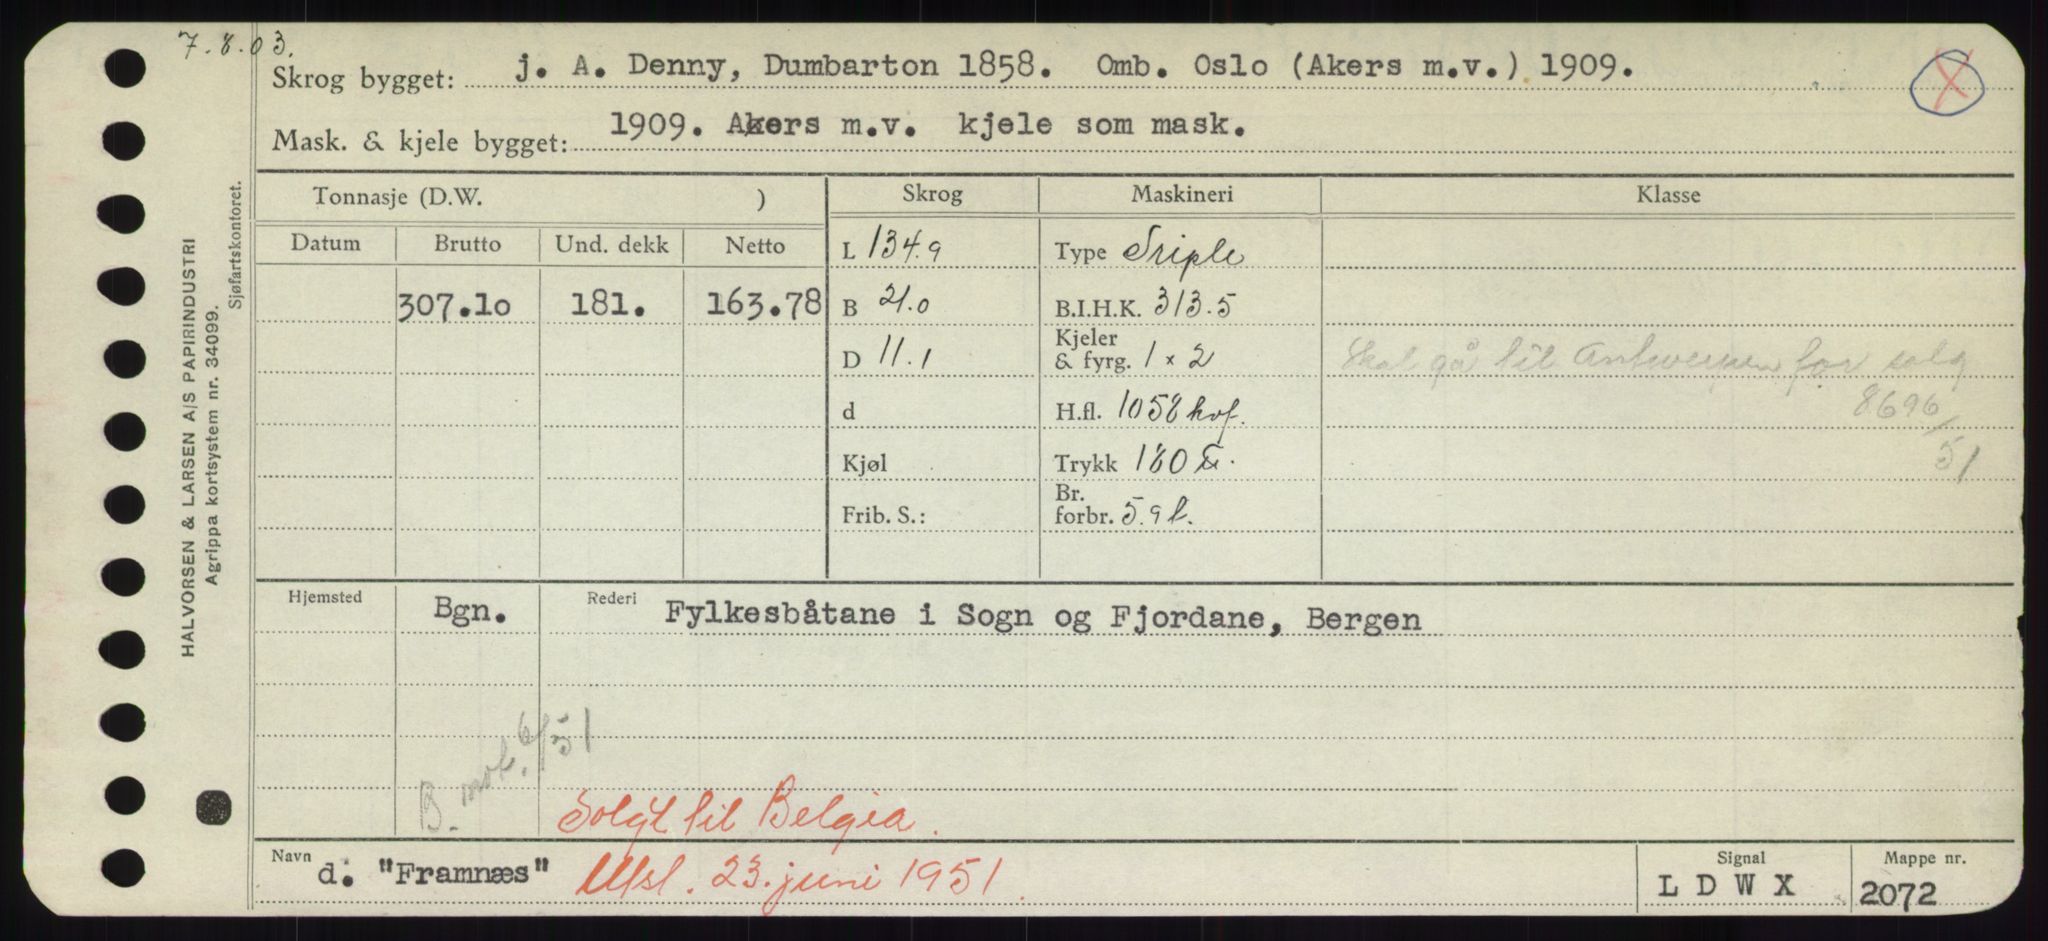 7.8.03.
Skrog bygget: j. A. Denny, Dumbarton 1858. Omb. Oslo (Akers m.v.) 1909.
X
Mask. & kjele bygget: 1909. Akers m.v. kjele som mask.
HALVORSEN & LARSEN A/S PAPIRINDUSTRI
Agrippa kortsystem nr. 34099.
Sjøfartskontoret.
Tonnasje (D.W. ) Skrog Maskineri Klasse
Datum Brutto Und. dekk Netto L 134.9 Type Triple
307.10 181. 163.78 B 21.0 B.I.H.K. 313.5
D 11.1 Kjeler & fyrg. 1 x 2 Skal gå til Antwerpen for salg
d H.fl. 1058 kvf. 8696/51
Kjøl Trykk 180
Br. forbr. 5.9 t.
Frib. S.:
Hjemsted Bgn. Rederi Fylkesbåtane i Sogn og Fjordane, Bergen
B. mot. 6/51
Solgt til Belgia.
Navn d. "Framnæs" Utsl. 23. juni 1951.
Signal L D W X
Mappe nr. 2072